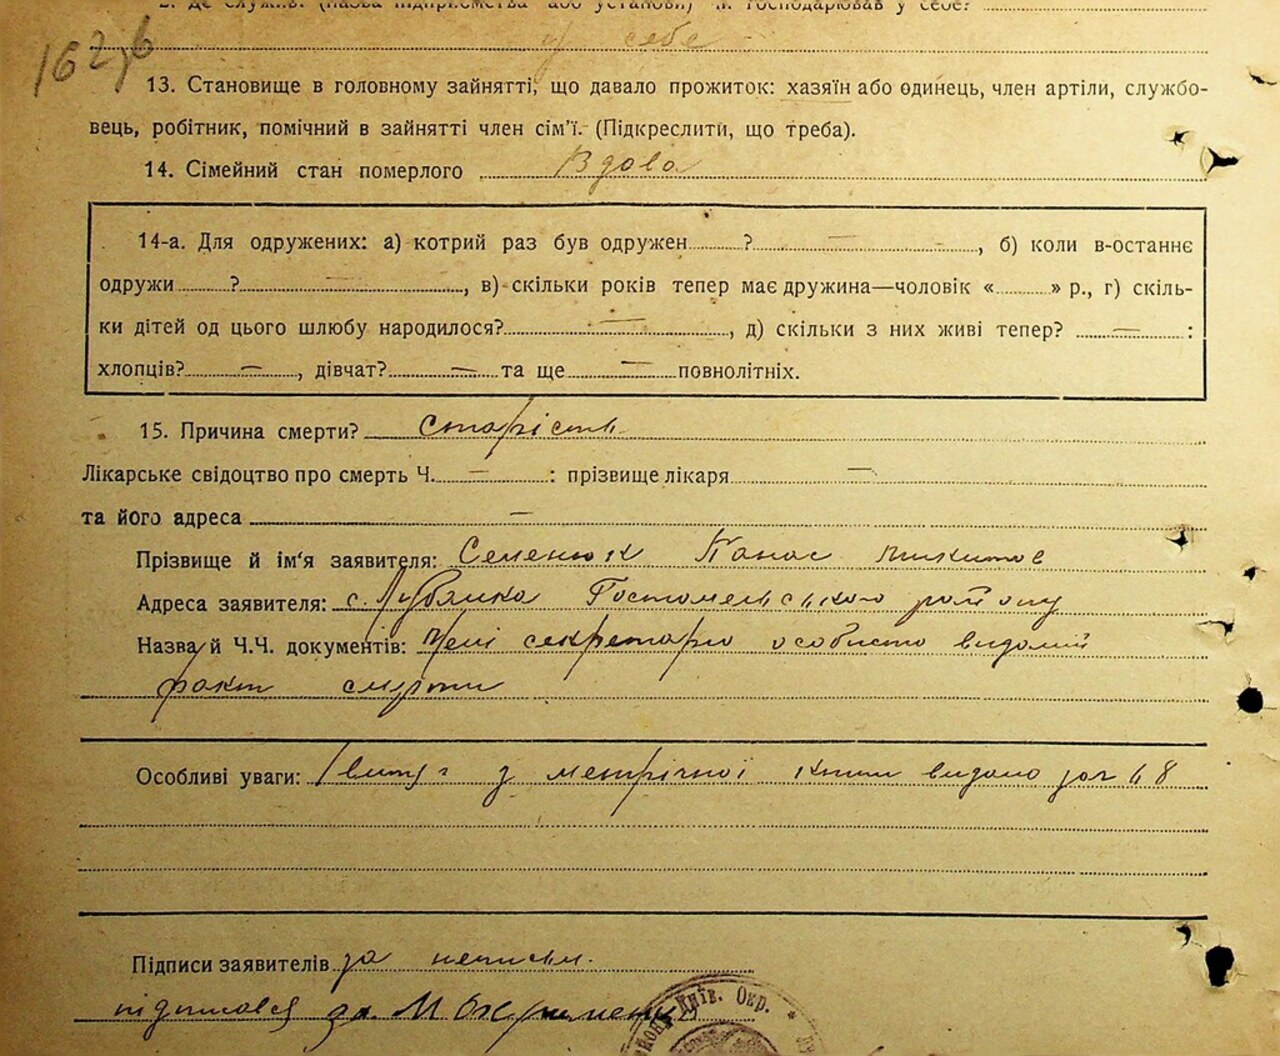 2. Де служив: (назва підприємства або установи) чи господарював у себе?
у себе
162,б
13. Становище в головному зайнятті, що давало прожиток: хазяїн або одинець, член артіли, службо-
вець, робітник, помічний в зайнятті член сім'ї. (Підкреслити, що треба).
14. Сімейний стан померлого Вдова
14-а. Для одружених: а) котрий раз був одружен ? —, б) коли в-останнє
одружи ? —, в) скільки років тепер має дружина—чоловік « » р., г) скіль-
ки дітей од цього шлюбу народилося? —, д) скільки з них живі тепер? — :
хлопців? —, дівчат? — та ще — повнолітніх.
15. Причина смерти? старість
Лікарське свідоцтво про смерть Ч. — : прізвище лікаря —
та його адреса —
Прізвище й ім'я заявителя: Семенюк Панас Микитов
Адреса заявителя: с. Лубянка Гостомельського району
Назва й Ч.Ч. документів: Мені секретарю особисто видомий
факт смерти
Особливі уваги: витяг з метрічної книги видано за ч 48
Підписи заявителів за неписьм.
підписався
Київ. Окр.